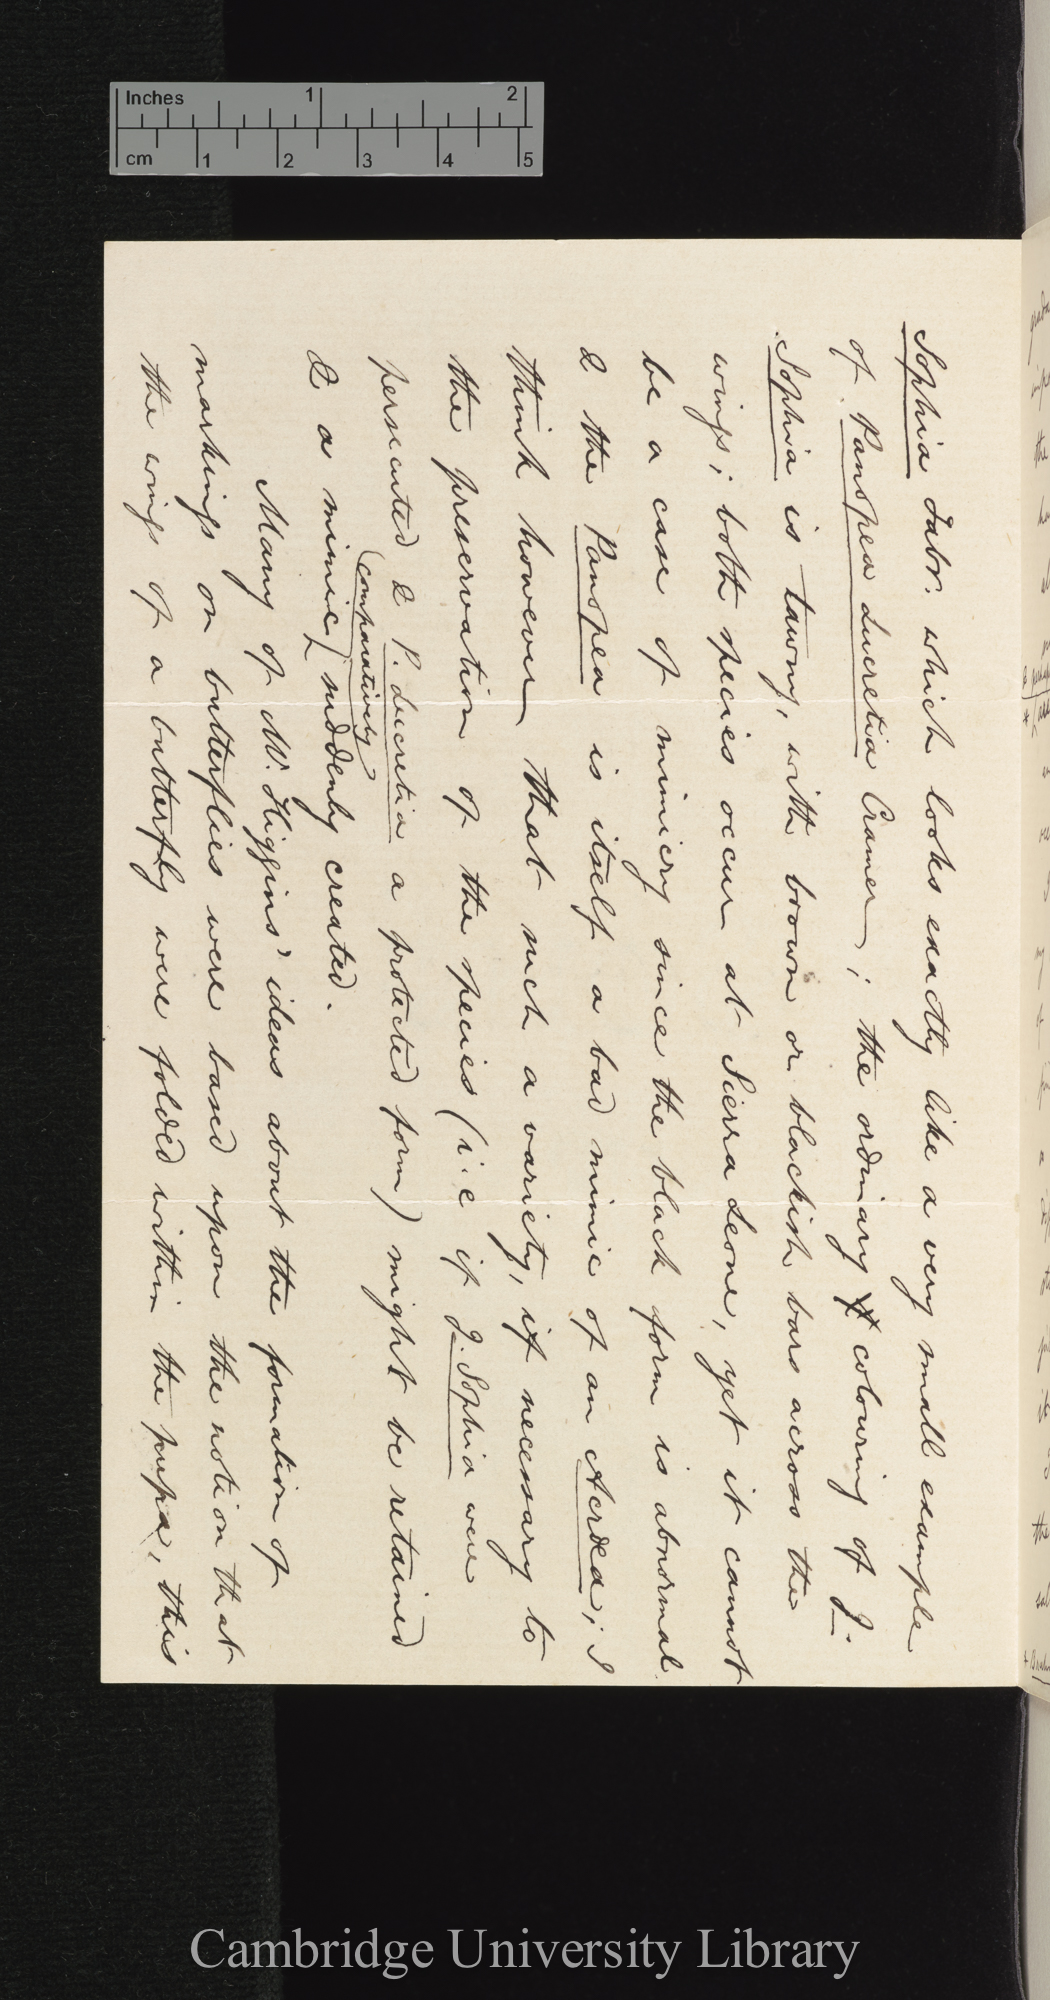 Inches 1 2
cm 1 2 3 4 5
Sophia Fabr. which looks exactly like a very small example
of Panopea Lucretia Cramer; the ordinary colouring of J.
Sophia is tawny, with brown or blackish bars across the
wings; both species occur at Sierra Leone, yet it cannot
be a case of mimicry since the black form is abnormal
& the Panopea is itself a bad mimic of an Acræa; I
think however that such a variety, if necessary to
the preservation of the species (i.e if J. Sophia were
persecuted & P. Lucretia a protected form) might be retained
& a mimic (comparatively) suddenly created.
Many of Mr. Higgins' ideas about the formation of
markings on butterflies were based upon the notion that
the wings of a butterfly were folded within the pupa, this
Cambridge University Library